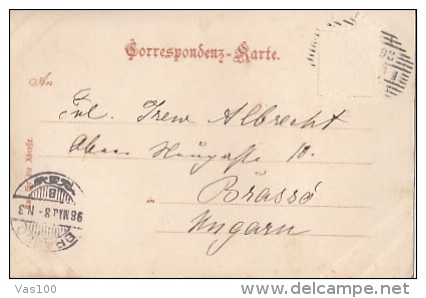 Correspondenz-Karte.
An
Frl. Irew Albrecht
Obere Neugasse 10.
in Brassó
Ungarn
98 MAJ 8 N 3
Vas100
delcampe.net